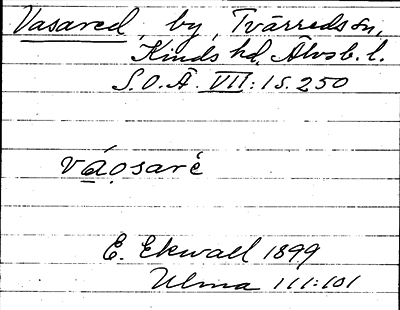 Vasared, by, Tvärreds sn,
Kinds hd, Älvsb. l.
S.O.Ä VII:1 s. 250
vá̱ọsarè
E. Ekwall 1899
Ulma 111:101